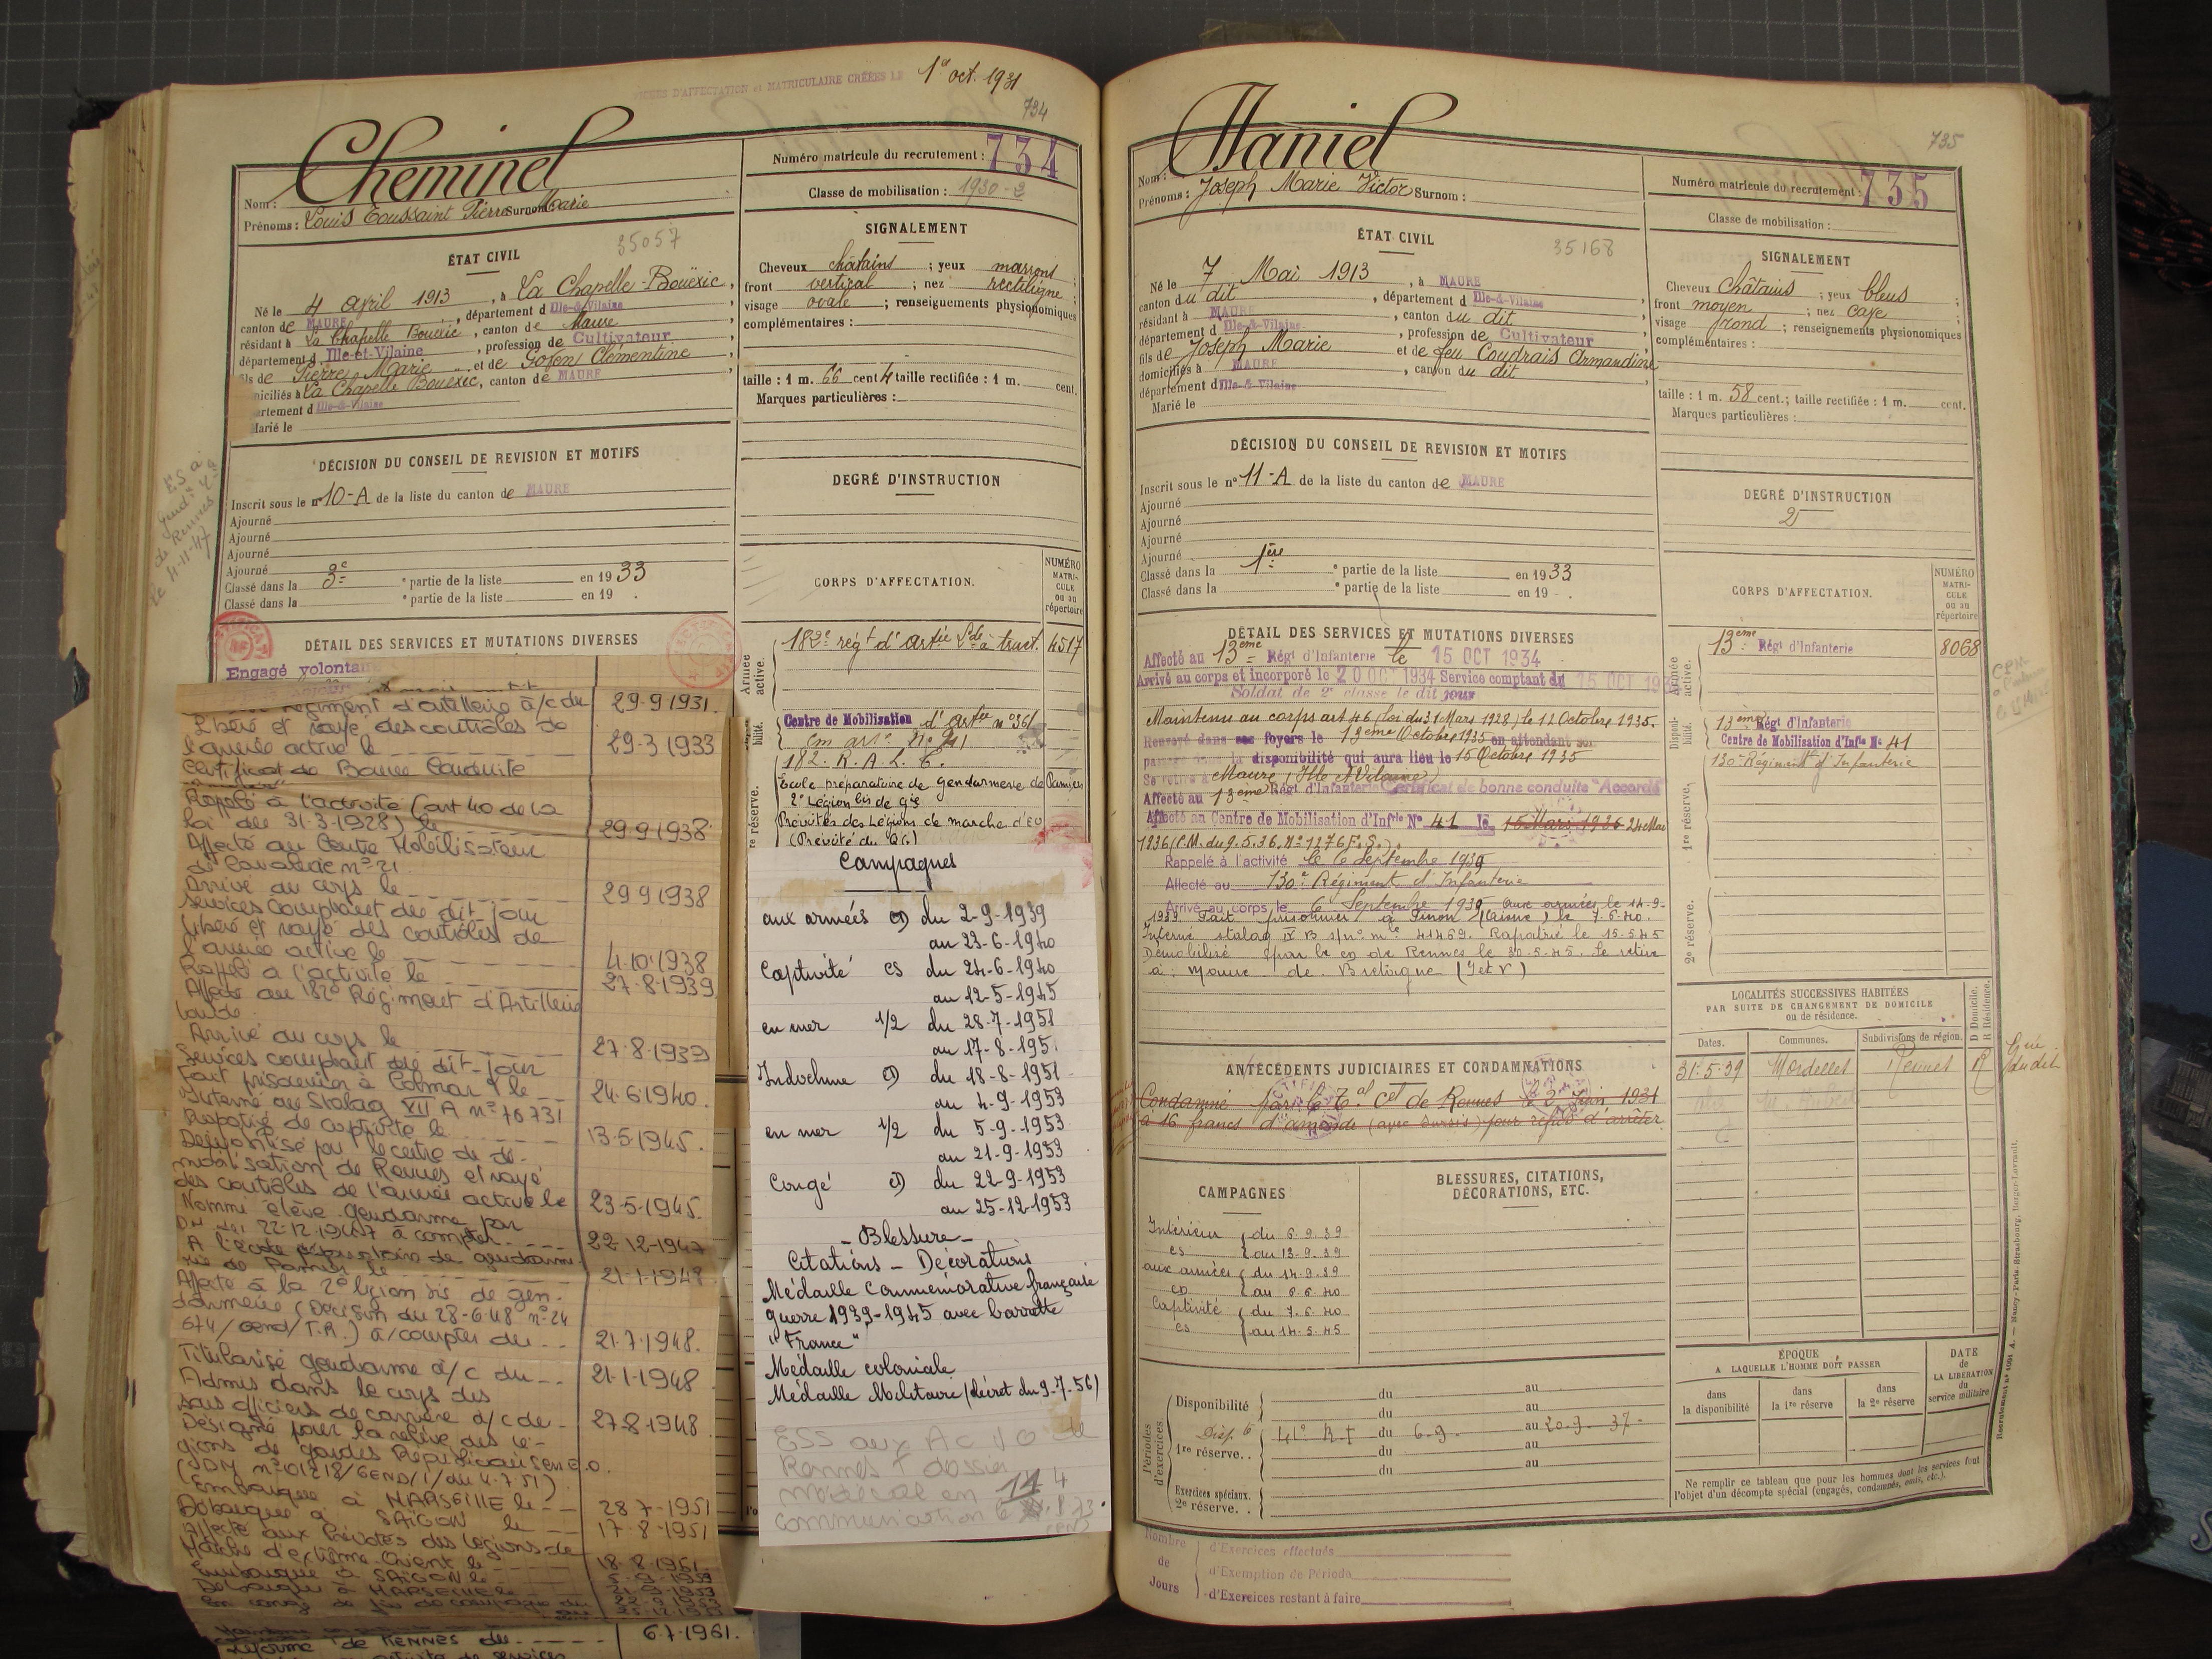 FICHES D'AFFECTATION et MATRICULAIRE CRÉÉES LE 1er oct. 1931
734
Cheminel
Nom :
Prénoms : Louis Toussaint Pierre Marie Surnom :
Numéro matricule du recrutement : 734
Classe de mobilisation : 1930-2
ÉTAT CIVIL
35057
Né le 4 avril 1913, à La Chapelle-Bouëxic,
canton de MAURE, département d Ille-&-Vilaine
résidant à La Chapelle Bouexic, canton de Maure
département d Ille-et-Vilaine, profession de Cultivateur
fils de Pierre Marie et de Clémentine
domiciliés à La Chapelle Bouexic, canton de MAURE
département d Ille-&-Vilaine
Marié le
SIGNALEMENT
Cheveux châtains ; yeux marrons ;
front vertical ; nez rectiligne ;
visage ovale ; renseignements physionomiques
complémentaires :
taille : 1 m. 66 cent 4 taille rectifiée : 1 m. cent.
Marques particulières :
DÉCISION DU CONSEIL DE REVISION ET MOTIFS
Inscrit sous le n° 10-A de la liste du canton de MAURE
Ajourné
Ajourné
Ajourné
Ajourné
Classé dans la 3e partie de la liste en 1933
Classé dans la e partie de la liste en 19 .
DEGRÉ D'INSTRUCTION
CORPS D'AFFECTATION.
NUMÉRO MATRICULE ou au répertoire
E.S. a
Gend
de Rennes
le 4-11-47
DÉTAIL DES SERVICES ET MUTATIONS DIVERSES
Engagé volontai
Régiment d'artillerie à/c de 29.9.1931.
Libéré et rayé des contrôles de
l'armée active le 29.3.1933
Certificat de Bonne Conduite
Rappelé à l'activité (art 40 de la
loi du 31-3-1928) le 29.9.1938
Affecté au Centre Mobilisateur
de Cavalerie n° 21
Arrivé au corps le 29.9.1938
Services comptant du dit jour
Libéré et rayé des contrôles de
l'armée active le 4.10.1938
Rappelé à l'activité le 27.8.1939
Affecté au 182e Régiment d'Artillerie
lourde
Arrivé au corps le 27.8.1939
Services comptant du dit-jour
Fait prisonnier à Colmar le 24.6.1940.
Interné au Stalag VII A n° 70731
Rapatrié de captivité le 13.5.1945.
Démobilisé par le centre de dé-
mobilisation de Rennes et rayé
des contrôles de l'armée active le 23.5.1945.
Nommé élève-gendarme par
DM du 22-12-1947 à compter 22.12.1947
A l'école préparatoire de gendarme-
rie de Pamiers le 21.1.1948.
Affecté à la 2e légion bis de gen-
darmerie (Décision du 28-6-48 n° 24
674/Gend/T.R.) à/compter du 21.7.1948.
Titularisé gendarme à/c du 21.1.1948
Admis dans le corps des
sous officiers de carrière à/c de 27.8.1948
Désigné pour la relève des lé-
gions de gardes Républicains en E.O.
(DM n° 01218/GEND/1/du 4.7.51)
Embarqué à MARSEILLE le 28.7.1951
Débarqué à SAIGON le 17.8.1951
Affecté aux Prévôtés des légions de
Marche d'extrême Orient le 18.8.1951
Embarqué à SAIGON le 5.9.1953
Débarqué à MARSEILLE le 21.9.1953
En congé de fin de campagne du 22.9.1953
au 25.12.1953
réforme de RENNES du 6.7.1961.
Armée active.
182e régt d'Artie Lde à tract. 4517
Centre de Mobilisation d'Artie n° 361
cm artie n° 211
182. R.A.L.T.
Ecole préparatoire de Gendarmerie de Pamiers
2e Légion bis de Gie
Prévôtés des Légions de marche d'EO
(Prévôté du QG)
Campagnes
aux armées du 2-9-1939
au 23-6-1940
Captivité cs du 24-6-1940
au 12-5-1945
en mer 1/2 du 28-7-1951
au 17-8-195.
Indochine du 18-8-1951
au 4-9-1953
en mer 1/2 du 5-9-1953
au 21-9-1953
Congé du 22-9-1953
au 25-12-1953
- Blessure -
Citations - Décorations
Médaille Commémorative française
guerre 1939-1945 avec barrette
"France"
Médaille coloniale
Médaille Militaire (décret du 9-7-56)
ESS aux AC 10 de
Rennes + dossier
médical en 114
communication
735
Haniel
Nom :
Prénoms : Joseph Marie Victor Surnom :
Numéro matricule du recrutement : 735
Classe de mobilisation :
ÉTAT CIVIL
35168
Né le 7 Mai 1913, à MAURE
canton du dit, département d Ille-&-Vilaine
résidant à MAURE, canton du dit
département d Ille-&-Vilaine, profession de Cultivateur
fils de Joseph Marie et de feu Coudrais Armandine
domiciliés à MAURE, canton du dit
département d Ille-&-Vilaine
Marié le
SIGNALEMENT
Cheveux châtains ; yeux bleus ;
front moyen ; nez cave ;
visage rond ; renseignements physionomiques
complémentaires :
taille : 1 m. 58 cent.; taille rectifiée : 1 m. cent.
Marques particulières :
DÉCISION DU CONSEIL DE REVISION ET MOTIFS
Inscrit sous le n° 11-A de la liste du canton de MAURE
Ajourné
Ajourné
Ajourné
Ajourné
Classé dans la 1ère partie de la liste en 1933
Classé dans la e partie de la liste en 19 .
DEGRÉ D'INSTRUCTION
2
CORPS D'AFFECTATION.
NUMÉRO MATRICULE ou au répertoire
DÉTAIL DES SERVICES ET MUTATIONS DIVERSES
Affecté au 13ème Régt d'Infanterie le 15 OCT 1934
Arrivé au corps et incorporé le 20 OCT 1934 Service comptant du 15 OCT 193
Soldat de 2e classe le dit jour
Maintenu au corps art 46 (loi du 31 Mars 1928) le 12 Octobre 1935.
Renvoyé dans ses foyers le 13ème Octobre 1935 en attendant son
passage dans la disponibilité qui aura lieu le 15 Octobre 1935
Se retire à Maure (Ille et Vilaine)
Affecté au 13ème Régt d'Infanterie Certificat de bonne conduite "Accordé"
Affecté au Centre de Mobilisation d'Infrie N° 41 le 15 Mars 1936 24 Mai
1936 (C.M. du 9.5.36. N° 1276 F.S.).
Rappelé à l'activité le 6 Septembre 1939
Affecté au 130e Régiment d'Infanterie
Arrivé au corps le 6 Septembre 1939 aux armées le 14-9-
1939 Fait prisonnier à Pinon (Aisne) le 7.6.40.
Interné stalag IV B s/n° mle 41469. Rapatrié le 15-5-45
Démobilisé par le cn de Rennes le 30.5.45. Se retire
à Maure de Bretagne (I et V)
Armée active.
13ème Régt d'Infanterie 8068
Disponibilité.
13ème Régt d'Infanterie
Centre de Mobilisation d'Infie N° 41
130e Régiment d'Infanterie
1re réserve.
2e réserve.
LOCALITÉS SUCCESSIVES HABITÉES
PAR SUITE DE CHANGEMENT DE DOMICILE
ou de résidence.
D Domicile. R Résidence.
Dates. Communes. Subdivisions de région.
31-5-39 Mordelles Rennes R
ANTÉCÉDENTS JUDICIAIRES ET CONDAMNATIONS
Condamné par le Tal Cel de Rennes le 2 Juin 1931
à 16 francs d'amende (avec sursis) pour refus d'arrêter
CAMPAGNES
Intérieur du 6.9.39
cs au 13.9.39
aux armées du 14.9.39
au 6.6.40
Captivité du 7.6.40
cs au 14.5.45
BLESSURES, CITATIONS,
DÉCORATIONS, ETC.
Périodes d'exercices
Disponibilité du au
du au
Disp. 41e R.I du 6.9. au 20.9.37-
1re réserve. . du au
du au
Exercices spéciaux.
2e réserve. .
ÉPOQUE
A LAQUELLE L'HOMME DOIT PASSER
dans la disponibilité
dans la 1re réserve
dans la 2e réserve
DATE de LA LIBÉRATION du service militaire
Ne remplir ce tableau que pour les hommes dont les services font
l'objet d'un décompte spécial (engagés, condamnés, omis, etc.).
Nombre de Jours
d'Exercices effectués
d'Exemption de Période
d'Exercices restant à faire
Nancy-Paris-Strasbourg, Berger-Levrault.